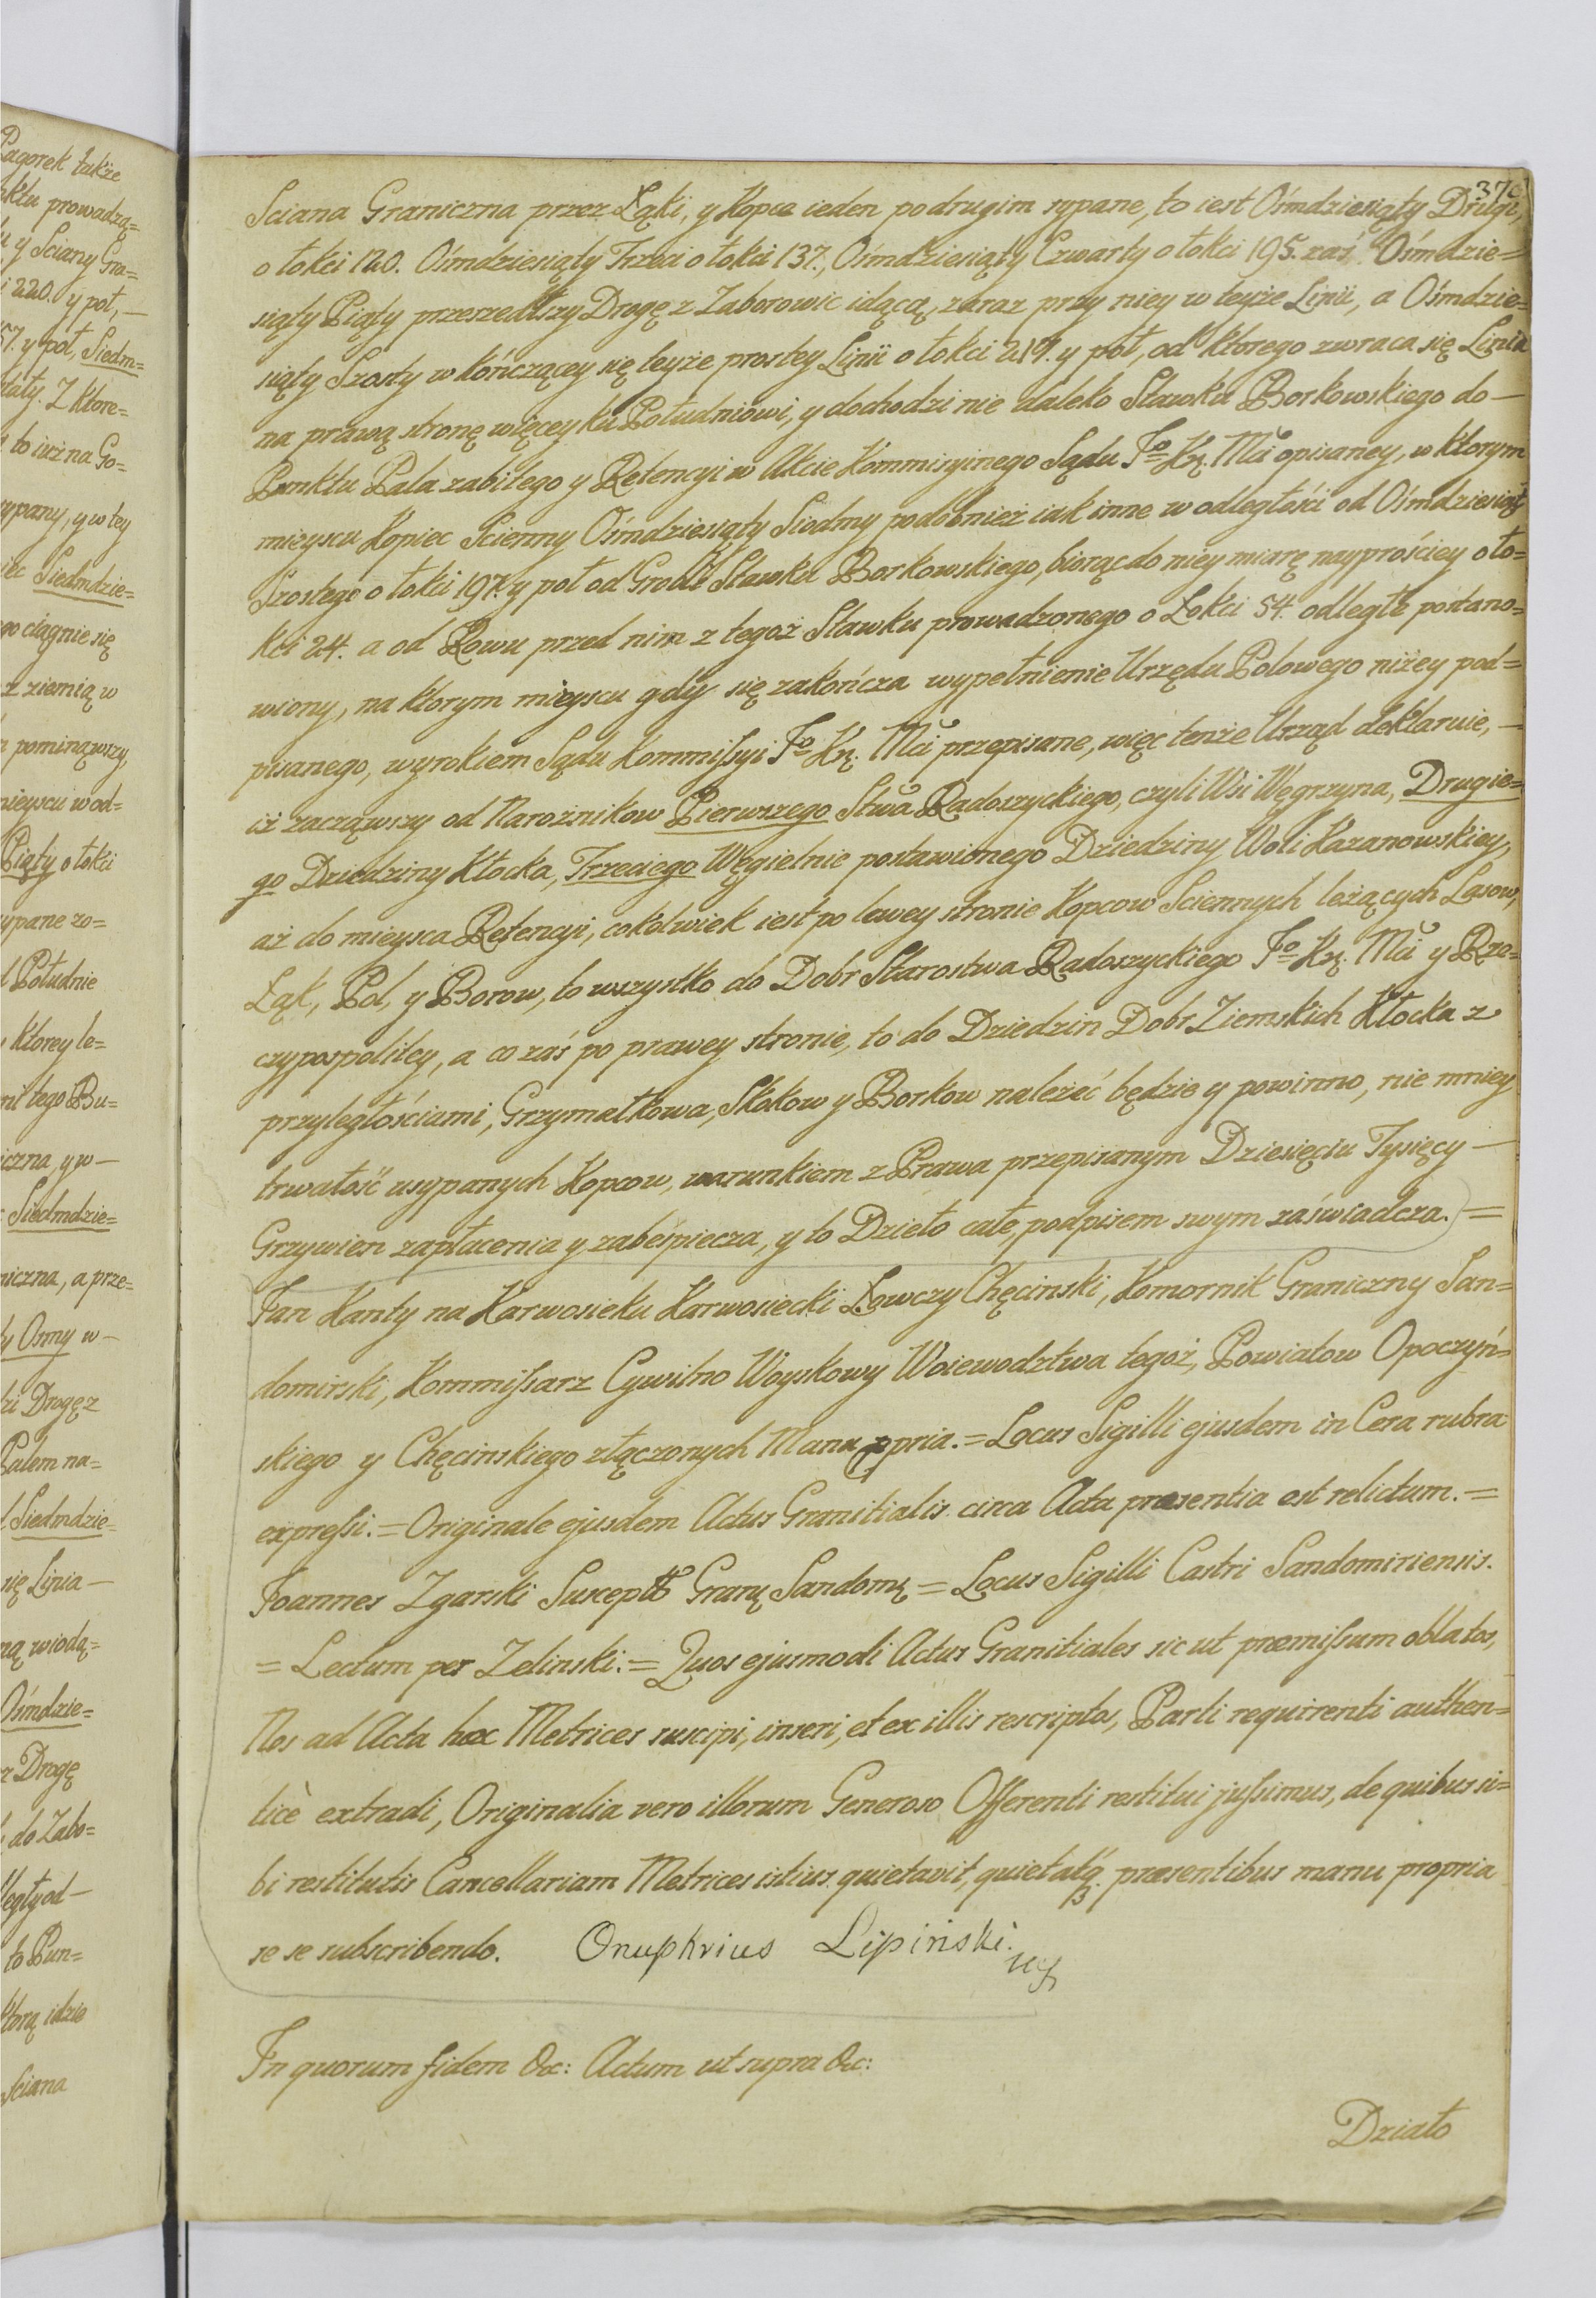 370
Sciana Graniczna przez Łąki, y Kopce ieden po drugim sypane, to iest Ośmdziesiąty Drugi,
o łokci 120. Ośmdziesiąty Trzeci o łokci 137., Ośmdziesiąty Czwarty o łokci 195. zaś Ośmdzie=
siąty Piąty przeszedłszy Drogę z Zaborowic idącą, zaraz przy niey w teyże Linii, a Ośmdzie=
siąty Szosty w kończącey się teyże prostey Linii o łokci 219. y poł, od ktorego zwraca się Linia
na prawą stronę więcey ku Południowi, y dochodzi nie daleko Stawku Borkowskiego do —
Punktu Pala zabitego y Retencyi w Akcie Kommisyinego Sądu Jo Kr. Mci opisaney, w ktorym
mieyscu Kopiec Scienny Ośmdziesiąty Siodmy podobnież iak inne w odległości od Ośmdziesiąt
Szostego o łokci 197. y poł od Grobli Stawku Borkowskiego, biorąc do niey miarę nayprościey o ło=
kci 24. a od Rowu przed nim z tegoż Stawku prowadzonego o Łokci 54. odległe postano=
wiony, na ktorym mieyscu gdy się zakończa wypełnienie Urzędu Polowego niżey pod=
pisanego, wyrokiem Sądu Kommissyi Jo Kr. Mci przepisane, więc tenże Urząd deklaruie, —
iż zacząwszy od Narożnikow Pierwszego Stwa Radoszyckiego, czyli Wsi Węgrzyna, Drugie=
go Dziedziny Kłocka, Trzeciego Węgielnie postawionego Dziedziny Woli Kazanowskiey,
aż do mieysca Retencyi, cokolwiek iest po lewey stronie Kopcow Sciennych leżących Lasow,
Łąk, Pol, y Borow, to wszystko do Dobr Starostwa Radoszyckiego Jo Kr. Mci y Rze=
czypospolitey, a co zaś po prawey stronie, to do Dziedzin Dobr Ziemskich Kłocka z
przyległościami, Grzymałkowa, Skokow y Borkow należeć będzie y powinno, nie mniey
trwałość usypanych Kopcow, warunkiem z Prawa przepisanym Dziesięciu Tysięcy —
Grzywien zapłacenia y zabeśpiecza, y to Dzieło całe, podpisem swym zaświadcza. =
Jan Kanty na Karwosieku Karwosiecki Łowczy Chęcinski, Komornik Graniczny San=
domirski, Kommissarz Cywilno Woyskowy Woiewodztwa tegoż, Powiatow Opoczyń=
skiego y Chęcinskiego złączonych Manu ppria. = Locus Sigilli ejusdem in Cera rubra
expressi. = Originale ejusdem Actus Granitialis circa Acta præsentia est relictum. =
Joannes Zgarski Suscept Gran Sandom = Locus Sigilli Castri Sandomiriensis.
= Lectum per Zelinski. = Quos ejusmodi Actus Granitiales sic ut præmissum oblatos,
Nos ad Acta hæc Metrices suscipi, inseri, et ex illis rescriptos, Parti requirenti authen=
ticè extradi, Originalia vero illorum Generoso Offerenti restitui jussimus, de quibus si=
bi restitutis Cancellariam Metrices istius quietavit, quietatq. præsentibus manu propria
se se subscribendo. Onuphrius Lipiński
In quorum fidem &c: Actum ut supra &c:
Działo
Pagorek także
nktu prowadzą=
y Sciany Gra=
220. y poł, —
57. y poł, Siedm=
Z ktore=
to iuż na Go=
sypany, y w tey
Siedmdzie=
go ciągnie się
z ziemią w
pominąwszy,
mieyscu w od=
Piąty o łokci
sypane zo=
Południe
ktorey le=
tego Bu=
iczna, y w —
Siedmdzie=
niczna, a prze=
Osmy w —
Drogę z
Palem na=
Siedmdzie=
się Linia —
wiodą=
Ośmdzie=
Drogę
do Zabo=
legły od —
to Pun=
ktorą idzie
Sciana